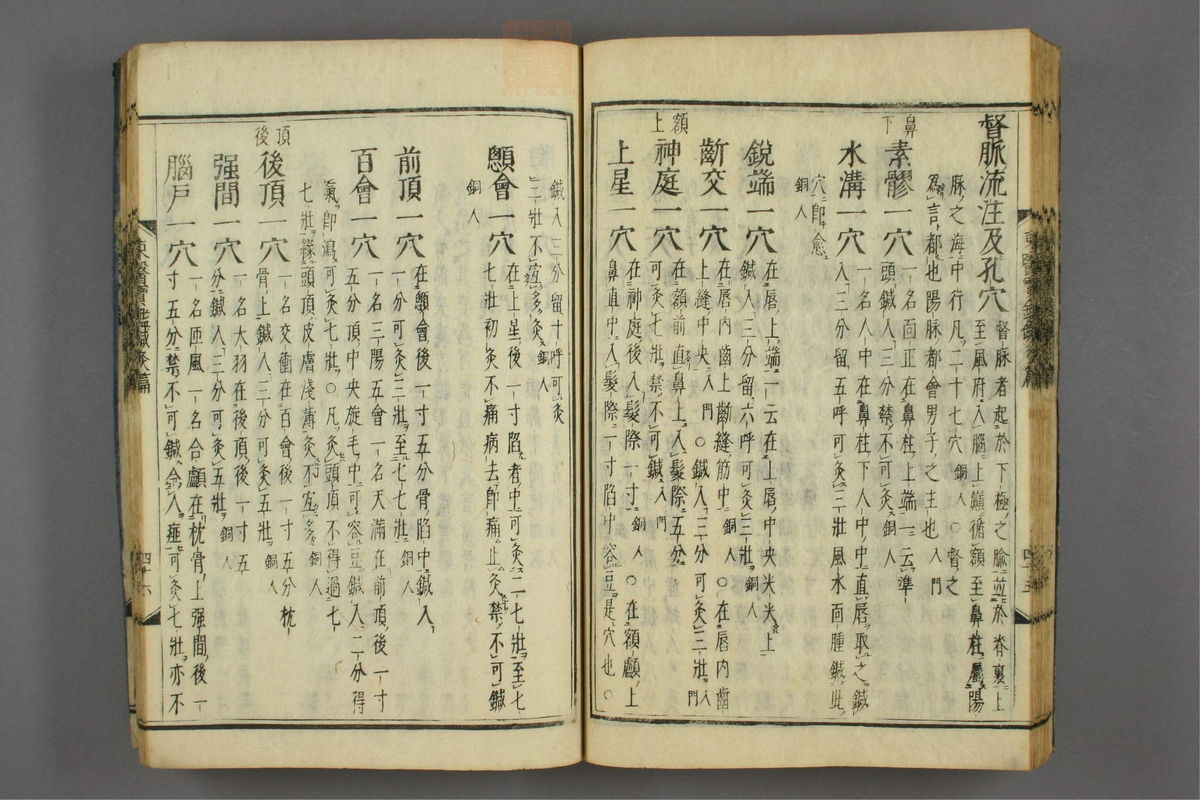 督脈流注及孔穴
督脉者起於下極之腧並於脊裏上
至風府入腦上巓循額至鼻柱屬陽
脉之海中行凡二十七穴銅人○督之
爲言都也陽脉都會男子之主也入門
鼻下
素髎一穴
一名面正在鼻柱上端一云準
頭鍼入三分禁不可灸銅人
水溝一穴
一名人中在鼻柱下人中直唇取之鍼
入三分留五呼可灸三壯風水面腫鍼此
穴即愈
銅人
銳端一穴
在唇上端一云在上唇中央尖尖上
鍼入三分留六呼可灸三壯銅人
齗交一穴
在唇內齒上齗縫筋中銅人○在唇內齒
上縫中央入門○鍼入三分可灸三壯入門
額上
神庭一穴
在額前直鼻上入髮際五分
可灸七壯禁不可鍼入門
上星一穴
在神庭後入髮際一寸銅人○在額顱上
鼻直中入髮際一寸陷中容豆是穴也○
鍼入三分留十呼可灸
三壯不宜多灸銅人
顖會一穴
在上星後一寸陷者中可灸二七壯至七
七壯初灸不痛病去即痛止灸禁不可鍼
銅人
前頂一穴
在顖會後一寸五分骨陷中鍼入
一分可灸三壯至七七壯銅人
百會一穴
一名三陽五會一名天滿在前頂後一寸
五分頂中央旋毛中可容豆鍼入二分得
氣即瀉可灸七壯○凡灸頭頂不得過七
七壯緣頭頂皮膚淺薄灸不宜多銅人
頂後
後頂一穴
一名交衝在百會後一寸五分枕
骨上鍼入三分可灸五壯銅人
强間一穴
一名大羽在後頂後一寸五
分鍼入三分可灸五壯銅人
腦戶一穴
一名匝風一名合顱在枕骨上强間後一
寸五分禁不可鍼令人瘂可灸七壯亦不
東醫寶鑑鍼灸篇
四十六